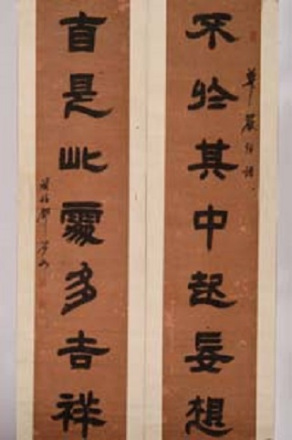 不於其中起妄想
華嚴
是此處多吉祥